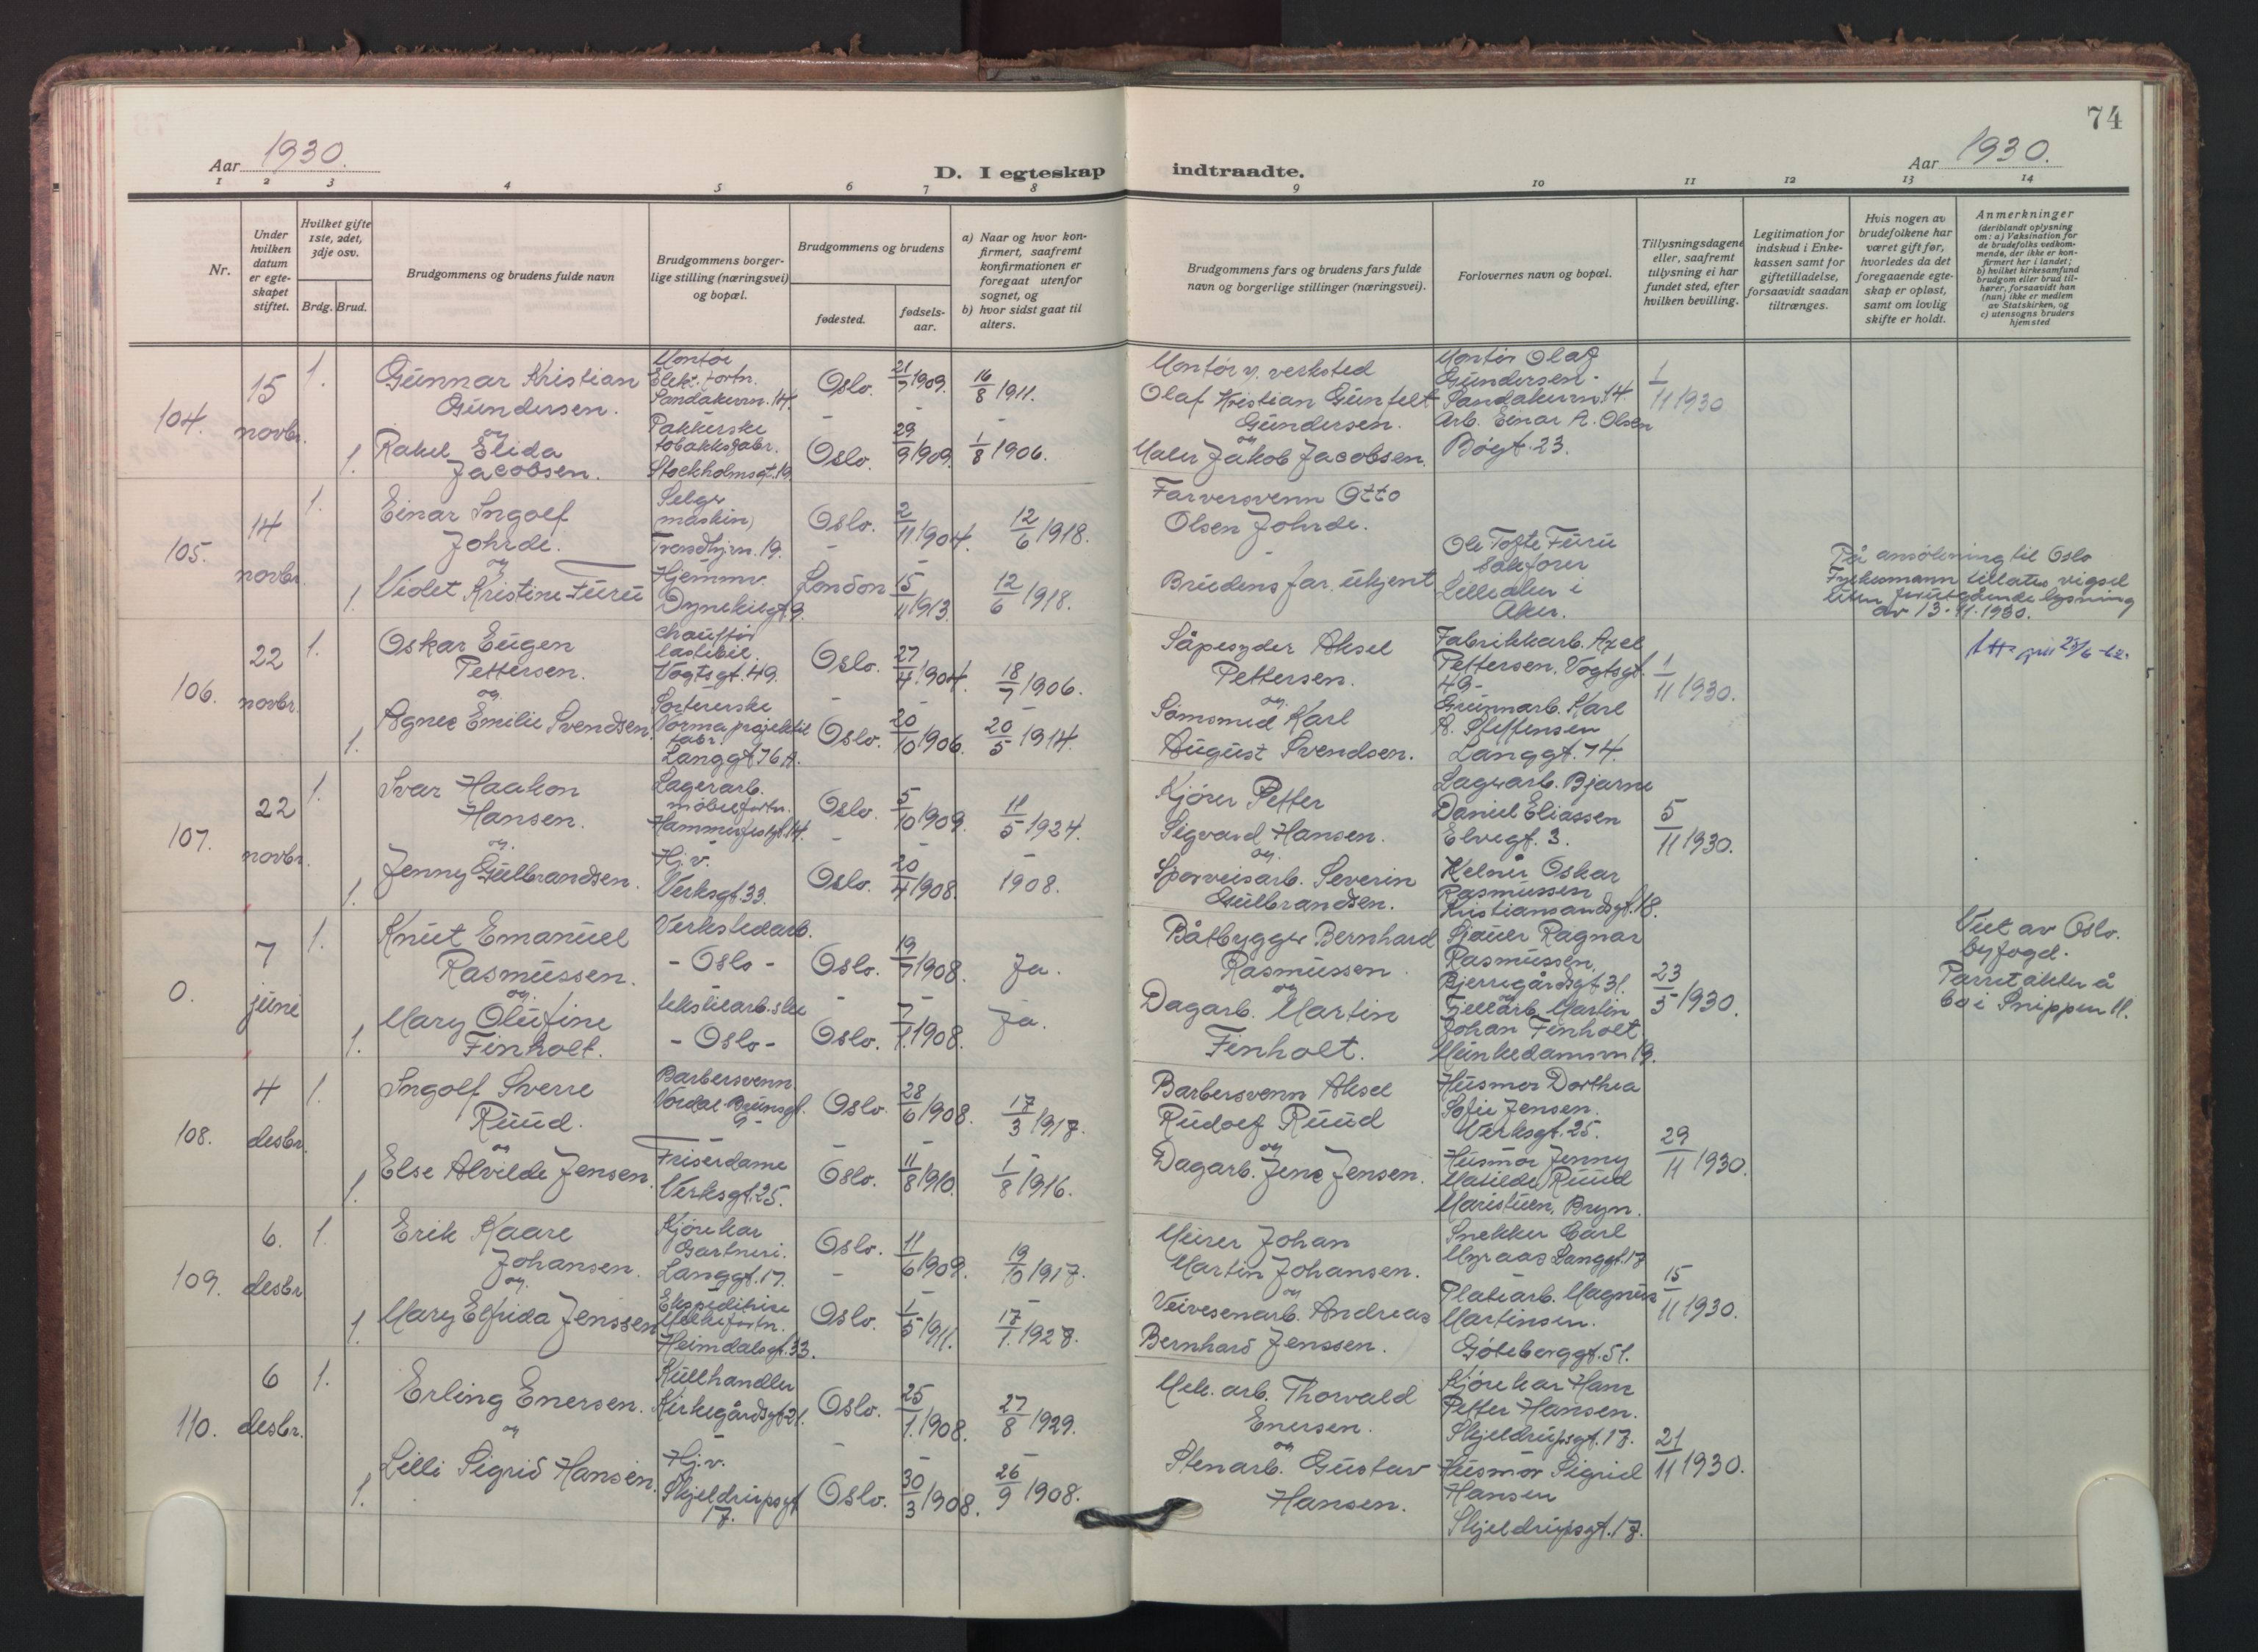 74
Aar 1930.
D. I egteskap
indtraadte.
Aar 1930.
1 2 3 4 5 6 7 8 9 10 11 12 13 14
Nr.
Under hvilken datum er egteskapet stiftet.
Hvilket gifte 1ste, 2det, 3dje osv.
Brdg. Brud.
Brudgommens og brudens fulde navn
Brudgommens borgerlige stilling (næringsvei) og bopæl.
Brudgommens og brudens
fødested.
fødselsaar.
a) Naar og hvor konfirmert, saafremt konfirmationen er foregaat utenfor sognet, og
b) hvor sidst gaat til alters.
Brudgommens fars og brudens fars fulde navn og borgerlige stillinger (næringsvei).
Forlovernes navn og bopæl.
Tillysningsdagene eller, saafremt tillysning ei har fundet sted, efter hvilken bevilling.
Legitimation for indskud i Enkekassen samt for giftetilladelse, forsaavidt saadan tiltrænges.
Hvis nogen av brudefolkene har været gift før, hvorledes da det foregaaende egteskap er opløst, samt om lovlig skifte er holdt.
Anmerkninger (deriblandt oplysning om: a) Vaksination for de brudefolks vedkommende, der ikke er konfirmert her i landet; b) hvilket kirkesamfund brudgom eller brud tilhører, forsaavidt han (hun) ikke er medlem av Statskirken, og c) utensogns bruders hjemsted
104.
15 novbr.
1.
Gunnar Kristian
Gundersen.
og
1.
Rakel Elida
Jacobsen.
Montør
Elekt. fortn.
Sandakervn. 14.
Pakkerske
tobakksfabr.
Stockholmsgt. 19
Oslo.
Oslo.
21/7 1909.
29/9 1909.
16/8 1911.
1/8 1906.
Montør v. verksted
Olaf Kristian Gunfelt
Gundersen.
og
Maler Jakob Jacobsen.
Montør Olaf
Gundersen -
Sandakervn 14.
Arb. Einar A. Olsen
Bøgt. 23.
1/11 1930
105.
14 novbr.
1.
Einar Ingolf
Johrde.
og
1.
Violet Kristine Furu
Selger
(maskin)
Trondhjvn. 19.
Hjemmv.
Dynekilgt. 9.
Oslo.
London
2/11 1904.
15/11 1913.
12/6 1918.
12/6 1918.
Farversvenn Otto
Olsen Johrde.
Brudens far ukjent
Ole Tofte Furu
Sakfører
Lilleaker i
Aker.
På ansökning til Oslo
Fylkesmann tillates vigsel
uten forutgående lysning
av 13.11.1930.
106.
22 novbr.
1.
Oskar Eugen
Pettersen.
og.
1.
Agnes Emilie Svendsen.
Chauffør
lastebil.
Vogtsgt. 49.
Sortererske
Norma projektil
fabr.
Langgt 76 A.
Oslo.
Oslo.
27/4 1904.
20/10 1906.
18/7 1906.
20/5 1914.
Såpesyder Aksel
Pettersen.
og.
Sømsmed Karl
August Svendsen.
Fabrikkarb. Axel
Pettersen, Vogtsgt.
49 -
Grunnarb. Karl
A. Steffensen
Langgt. 74.
1/11 1930.
107.
22 novbr.
1.
Ivar Haakon
Hansen.
og.
1.
Jenny Gulbrandsen.
Lagerarb.
møbelfortn.
Hammerfestgt. 14.
Hj. v.
Verksgt. 33.
Oslo.
Oslo.
5/10 1909.
20/4 1908.
11/5 1924.
1908.
Kjører Petter
Sigvard Hansen.
og.
Sporveisarb. Severin
Gulbrandsen.
Lagerarb. Bjarne
Daniel Eliassen
Elvegt. 3.
Kelner Oskar
Rasmussen
Kristiansandsgt. 18.
5/11 1930.
0.
7 juni
1.
Knut Emanuel
Rasmussen.
og.
1.
Mary Olufine
Finholt.
Verkstedarb.
- Oslo -
tekstilarb.ske
- Oslo -
Oslo.
Oslo.
19/7 1908.
7/1. 1908.
Ja.
Ja.
Båtbygger Bernhard
Rasmussen.
og
Dagarb. Martin
Finholt.
Sjauer Ragnar
Rasmussen,
Bjerregårdsgt 31.
og
Fjellarb. Martin
Johan Finholt
Munkedamsvn 19.
23/5 1930.
Viet av Oslo.
byfogd.
Parret akter å
bo i Snippen 11.
108.
4 desbr.
1.
Ingolf Sverre
Ruud.
og
1.
Else Alvilde Jensen.
Barbersvenn.
Nordal Brunsgt.
9 -
Friserdame
Verksgt. 25.
Oslo.
Oslo.
28/6 1908.
11/8 1910.
17/3 1917.
1/8 1916.
Barbersvenn Aksel
Rudolf Ruud
og
Dagarb. Jens Jensen.
Husmor Dorthea
Sofie Jensen.
Verksgt. 25.
Husmor Jenny
Matilde Ruud
Maristuen, Bryn.
29/11 1930.
109.
6. desbr
1.
Erik Kaare
Johansen.
og.
1.
Mary Elfrida Jenssen
Kjørekar
Gartneri.
Langgt. 17.
Ekspeditrise
Melkefortn.
Heimdalsgt. 33.
Oslo.
Oslo.
11/6 1909.
1/5 1911.
19/10 1917.
17/1. 1928.
Murer Johan
Martin Johansen.
og
Veivesenarb. Andreas
Bernhard Jenssen.
Snekker Carl
Myraas Langgt. 17
Platearb. Magnus
Martinsen.
Göteborggt. 51.
15/11 1930.
110.
6 desbr.
1.
Erling Enersen.
og
1.
Lilli Sigrid Hansen.
Kullhandler
Kirkegårdsgt 21.
Hj. v.
Skjeldrupsgt
17.
Oslo.
Oslo.
25/1. 1908.
30/3 1908.
27/8 1929.
26/9 1908.
Mek. arb. Thorvald
Enersen.
og
Stenarb. Gustav
Hansen.
Kjørekar Hans
Petter Hansen.
Skjeldrupsgt. 17.
Husmor Sigrid
Hansen
Skjeldrupsgt. 17.
21/11 1930.